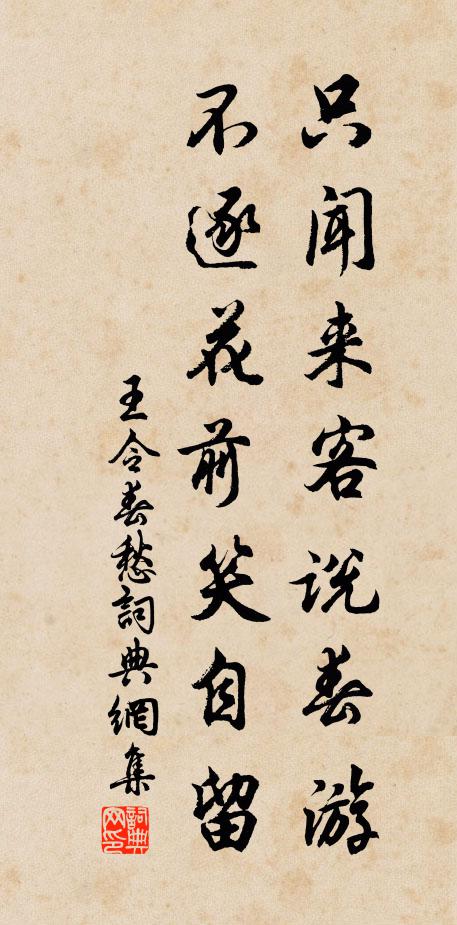 只闻来客说春游
不逐花前笑自留
王令春愁詞典網集
詞典网印